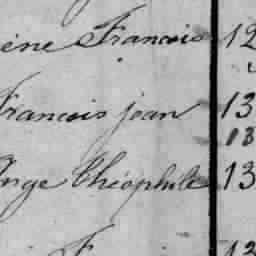 ène Francois 12
Francois jean 13
13
Ange Théophile 13
13